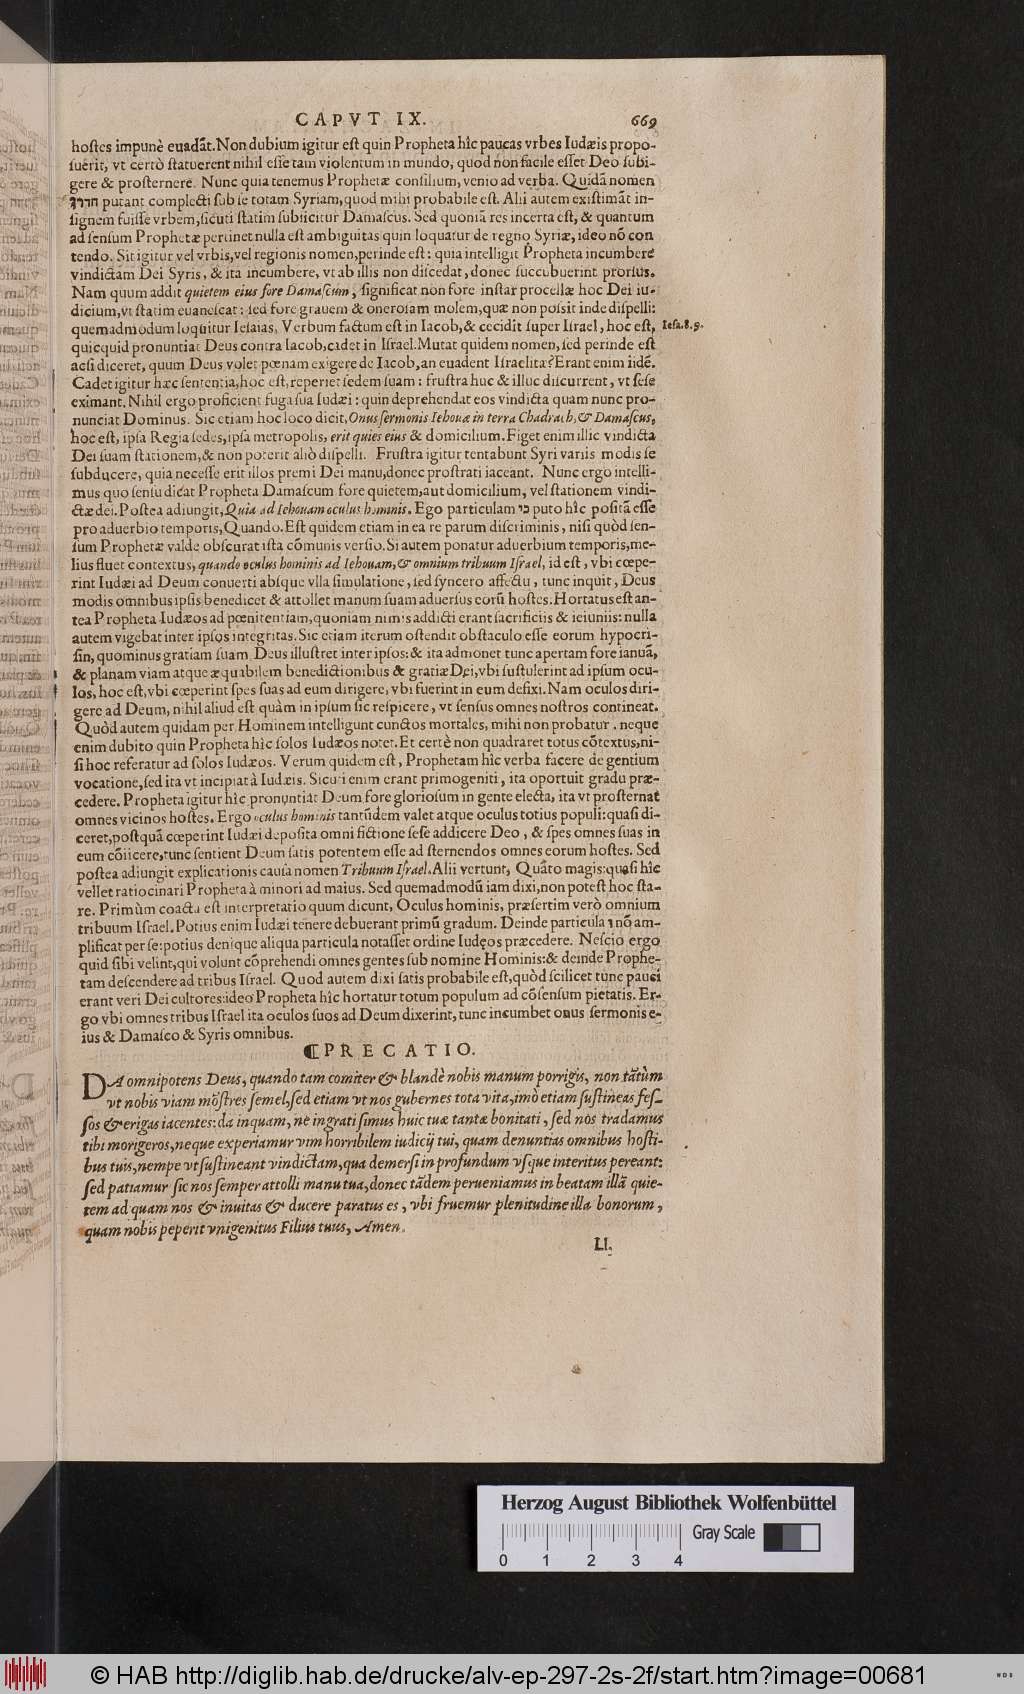 CAPVT IX. 669
hostes impunè euadãt. Non dubium igitur est quin Propheta hîc paucas vrbes Iudæis propo-
suerit, vt certò statuerent nihil esse tam violentum in mundo, quod non facile esset Deo subi-
gere & prosternere. Nunc quia tenemus Prophetæ consilium, venio ad verba. Quidã nomen
חדרך putant complecti sub se totam Syriam, quod mihi probabile est. Alii autem existimãt in-
signem fuisse vrbem, sicuti statim subiicitur Damascus. Sed quoniã res incerta est, & quantum
ad sensum Prophetæ pertinet nulla est ambiguitas quin loquatur de regno Syriæ, ideo nõ con
tendo. Sit igitur vel vrbis, vel regionis nomen, perinde est: quia intelligit Propheta incumbere
vindictam Dei Syris, & ita incumbere, vt ab illis non discedat, donec succubuerint prorsus.
Nam quum addit quietem eius fore Damascum, significat non fore instar procellæ hoc Dei iu-
dicium, vt statim euanescat: sed fore grauem & onerosam molem, quæ non possit inde dispelli:
quemadmodum loquitur Iesaias, Verbum factum est in Iacob, & cecidit super Israel, hoc est, Iesa. 8. 9.
quicquid pronuntiat Deus contra Iacob, cadet in Israel. Mutat quidem nomen, sed perinde est
acsi diceret, quum Deus volet pœnam exigere de Iacob, an euadent Israelitæ? Erant enim iidẽ.
Cadet igitur hæc sententia, hoc est, reperiet sedem suam: frustra huc & illuc discurrent, vt sese
eximant. Nihil ergo proficient fuga sua Iudæi: quin deprehendat eos vindicta quam nunc pro-
nunciat Dominus. Sic etiam hoc loco dicit, Onus sermonis Iehouæ in terra Chadrach, & Damascus,
hoc est, ipsa Regia sedes, ipsa metropolis, erit quies eius & domicilium. Figet enim illic vindicta
Dei suam stationem, & non poterit aliò dispelli. Frustra igitur tentabunt Syri variis modis se
subducere, quia necesse erit illos premi Dei manu, donec prostrati iaceant. Nunc ergo intelli-
mus quo sensu dicat Propheta Damascum fore quietem, aut domicilium, vel stationem vindi-
ctæ dei. Postea adiungit, Quia ad Iehouam oculus hominis. Ego particulam כי puto hîc positã esse
pro aduerbio temporis, Quando. Est quidem etiam in ea re parum discriminis, nisi quòd sen-
sum Prophetæ valde obscurat ista cõmunis versio. Si autem ponatur aduerbium temporis, me-
lius fluet contextus, quando oculus hominis ad Iehouam, & omnium tribuum Israel, id est, vbi cœpe-
rint Iudæi ad Deum conuerti absque vlla simulatione, sed syncero affectu, tunc inquit, Deus
modis omnibus ipsis benedicet & attollet manum suam aduersus eorũ hostes. Hortatus est an-
tea Propheta Iudæos ad pœnitentiam, quoniam nimis addicti erant sacrificiis & ieiuniis: nulla
autem vigebat inter ipsos integritas. Sic etiam iterum ostendit obstaculo esse eorum hypocri-
sin, quominus gratiam suam Deus illustret inter ipsos: & ita admonet tunc apertam fore ianuã,
& planam viam atque æquabilem benedictionibus & gratiæ Dei, vbi sustulerint ad ipsum ocu-
los, hoc est, vbi cœperint spes suas ad eum dirigere, vbi fuerint in eum defixi. Nam oculos diri-
gere ad Deum, nihil aliud est quàm in ipsum sic respicere, vt sensus omnes nostros contineat.
Quòd autem quidam per Hominem intelligunt cunctos mortales, mihi non probatur. neque
enim dubito quin Propheta hîc solos Iudæos notet. Et certè non quadraret totus cõtextus, ni-
si hoc referatur ad solos Iudæos. Verum quidem est, Prophetam hîc verba facere de gentium
vocatione, sed ita vt incipiat à Iudæis. Sicuti enim erant primogeniti, ita oportuit gradu præ-
cedere. Propheta igitur hîc pronuntiat Deum fore gloriosum in gente electa, ita vt prosternat
omnes vicinos hostes. Ergo oculus hominis tantũdem valet atque oculus totius populi: quasi di-
ceret, postquã cœperint Iudæi deposita omni fictione sese addicere Deo, & spes omnes suas in
eum cõiicere, tunc sentient Deum satis potentem esse ad sternendos omnes eorum hostes. Sed
postea adiungit explicationis causa nomen Tribuum Israel. Alii vertunt, Quãto magis: quasi hîc
vellet ratiocinari Propheta à minori ad maius. Sed quemadmodũ iam dixi, non potest hoc sta-
re. Primùm coacta est interpretatio quum dicunt, Oculus hominis, præsertim verò omnium
tribuum Israel. Potius enim Iudæi tenere debuerant primũ gradum. Deinde particula ו nõ am-
plificat per se: potius denique aliqua particula notasset ordine Iudęos præcedere. Nescio ergo
quid sibi velint, qui volunt cõprehendi omnes gentes sub nomine Hominis: & deinde Prophe-
tam descendere ad tribus Israel. Quod autem dixi satis probabile est, quòd scilicet tunc pauci
erant veri Dei cultores: ideo Propheta hîc hortatur totum populum ad cõsensum pietatis. Er-
go vbi omnes tribus Israel ita oculos suos ad Deum dixerint, tunc incumbet onus sermonis e-
ius & Damasco & Syris omnibus.
¶ PRECATIO.
DA omnipotens Deus, quando tam comiter & blandè nobis manum porrigis, non tãtùm
vt nobis viam mõstres semel, sed etiam vt nos gubernes tota vita, imò etiam sustineas fes-
sos & erigas iacentes: da inquam, ne ingrati simus huic tuæ tantæ bonitati, sed nos tradamus
tibi morigeros, neque experiamur vim horribilem iudicij tui, quam denuntias omnibus hosti-
bus tuis, nempe vt sustineant vindictam, qua demersi in profundum vsque interitus pereant:
sed patiamur sic nos semper attolli manu tua, donec tãdem perueniamus in beatam illã quie-
tem ad quam nos & inuitas & ducere paratus es, vbi fruemur plenitudine illa bonorum,
quam nobis peperit vnigenitus Filius tuus, Amen.
LI.
Herzog August Bibliothek Wolfenbüttel
Gray Scale
0 1 2 3 4
© HAB http://diglib.hab.de/drucke/alv-ep-297-2s-2f/start.htm?image=00681